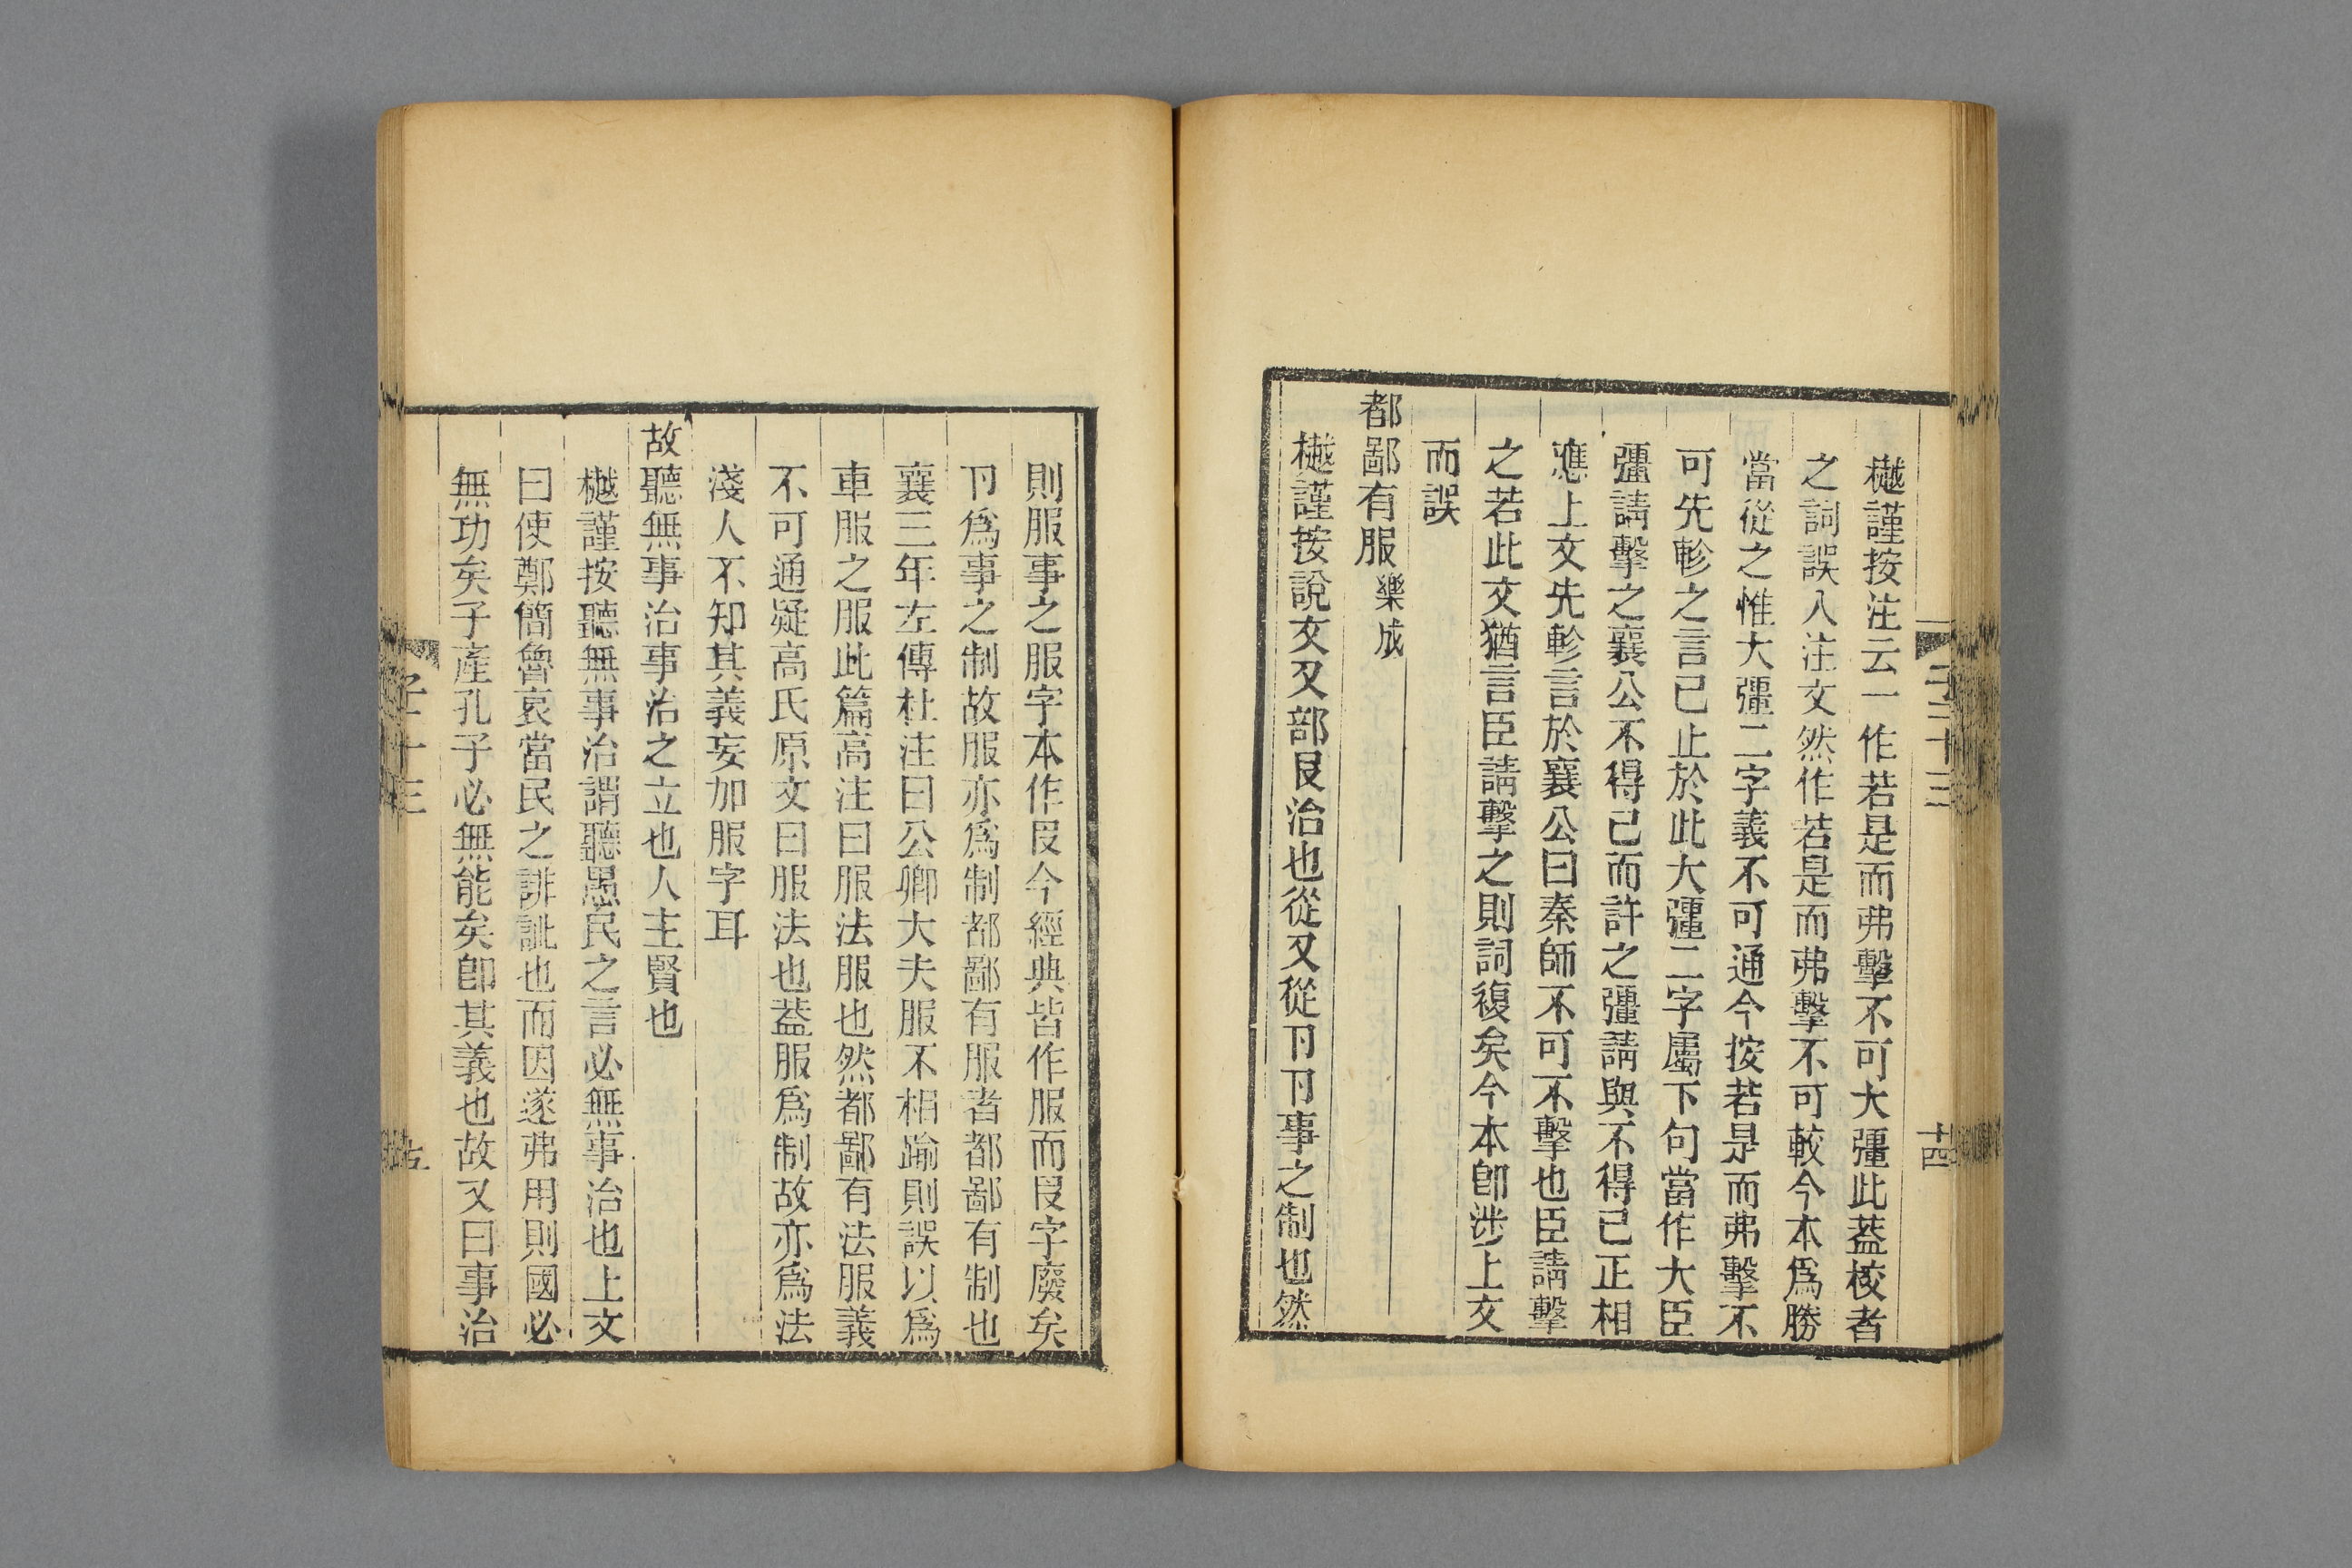 樾謹按注云一作若是而弗擊不可大彊此葢校者
之詞誤入注文然作若是而弗擊不可較今本爲勝
當從之惟大彊二字義不可通今按若是而弗擊不
可先軫之言已止於此大彊二字屬下句當作大臣
彊請擊之襄公不得已而許之彊請與不得已正相
應上文先軫言於襄公曰秦師不可不擊也臣請擊
之若此文猶言臣請擊之則詞複矣今本卽涉上文
而誤
都鄙有服樂成
樾謹按說文又部𠬝治也從又從卪卪事之制也然
則服事之服字本作𠬝今經典皆作服而𠬝字廢矣
卪爲事之制故服亦爲制都鄙有服者都鄙有制也
襄三年左傳杜注曰公卿大夫服不相踰則誤以爲
車服之服此篇高注曰服法服也然都鄙有法服義
不可通疑高氏原文曰服法也葢服爲制故亦爲法
淺人不知其義妄加服字耳
故聽無事治事治之立也人主賢也
樾謹按聽無事治謂聽愚民之言必無事治也上文
曰使鄭簡魯哀當民之誹訿也而因遂弗用則國必
無功矣子產孔子必無能矣卽其義也故又曰事治
子二十三
十四